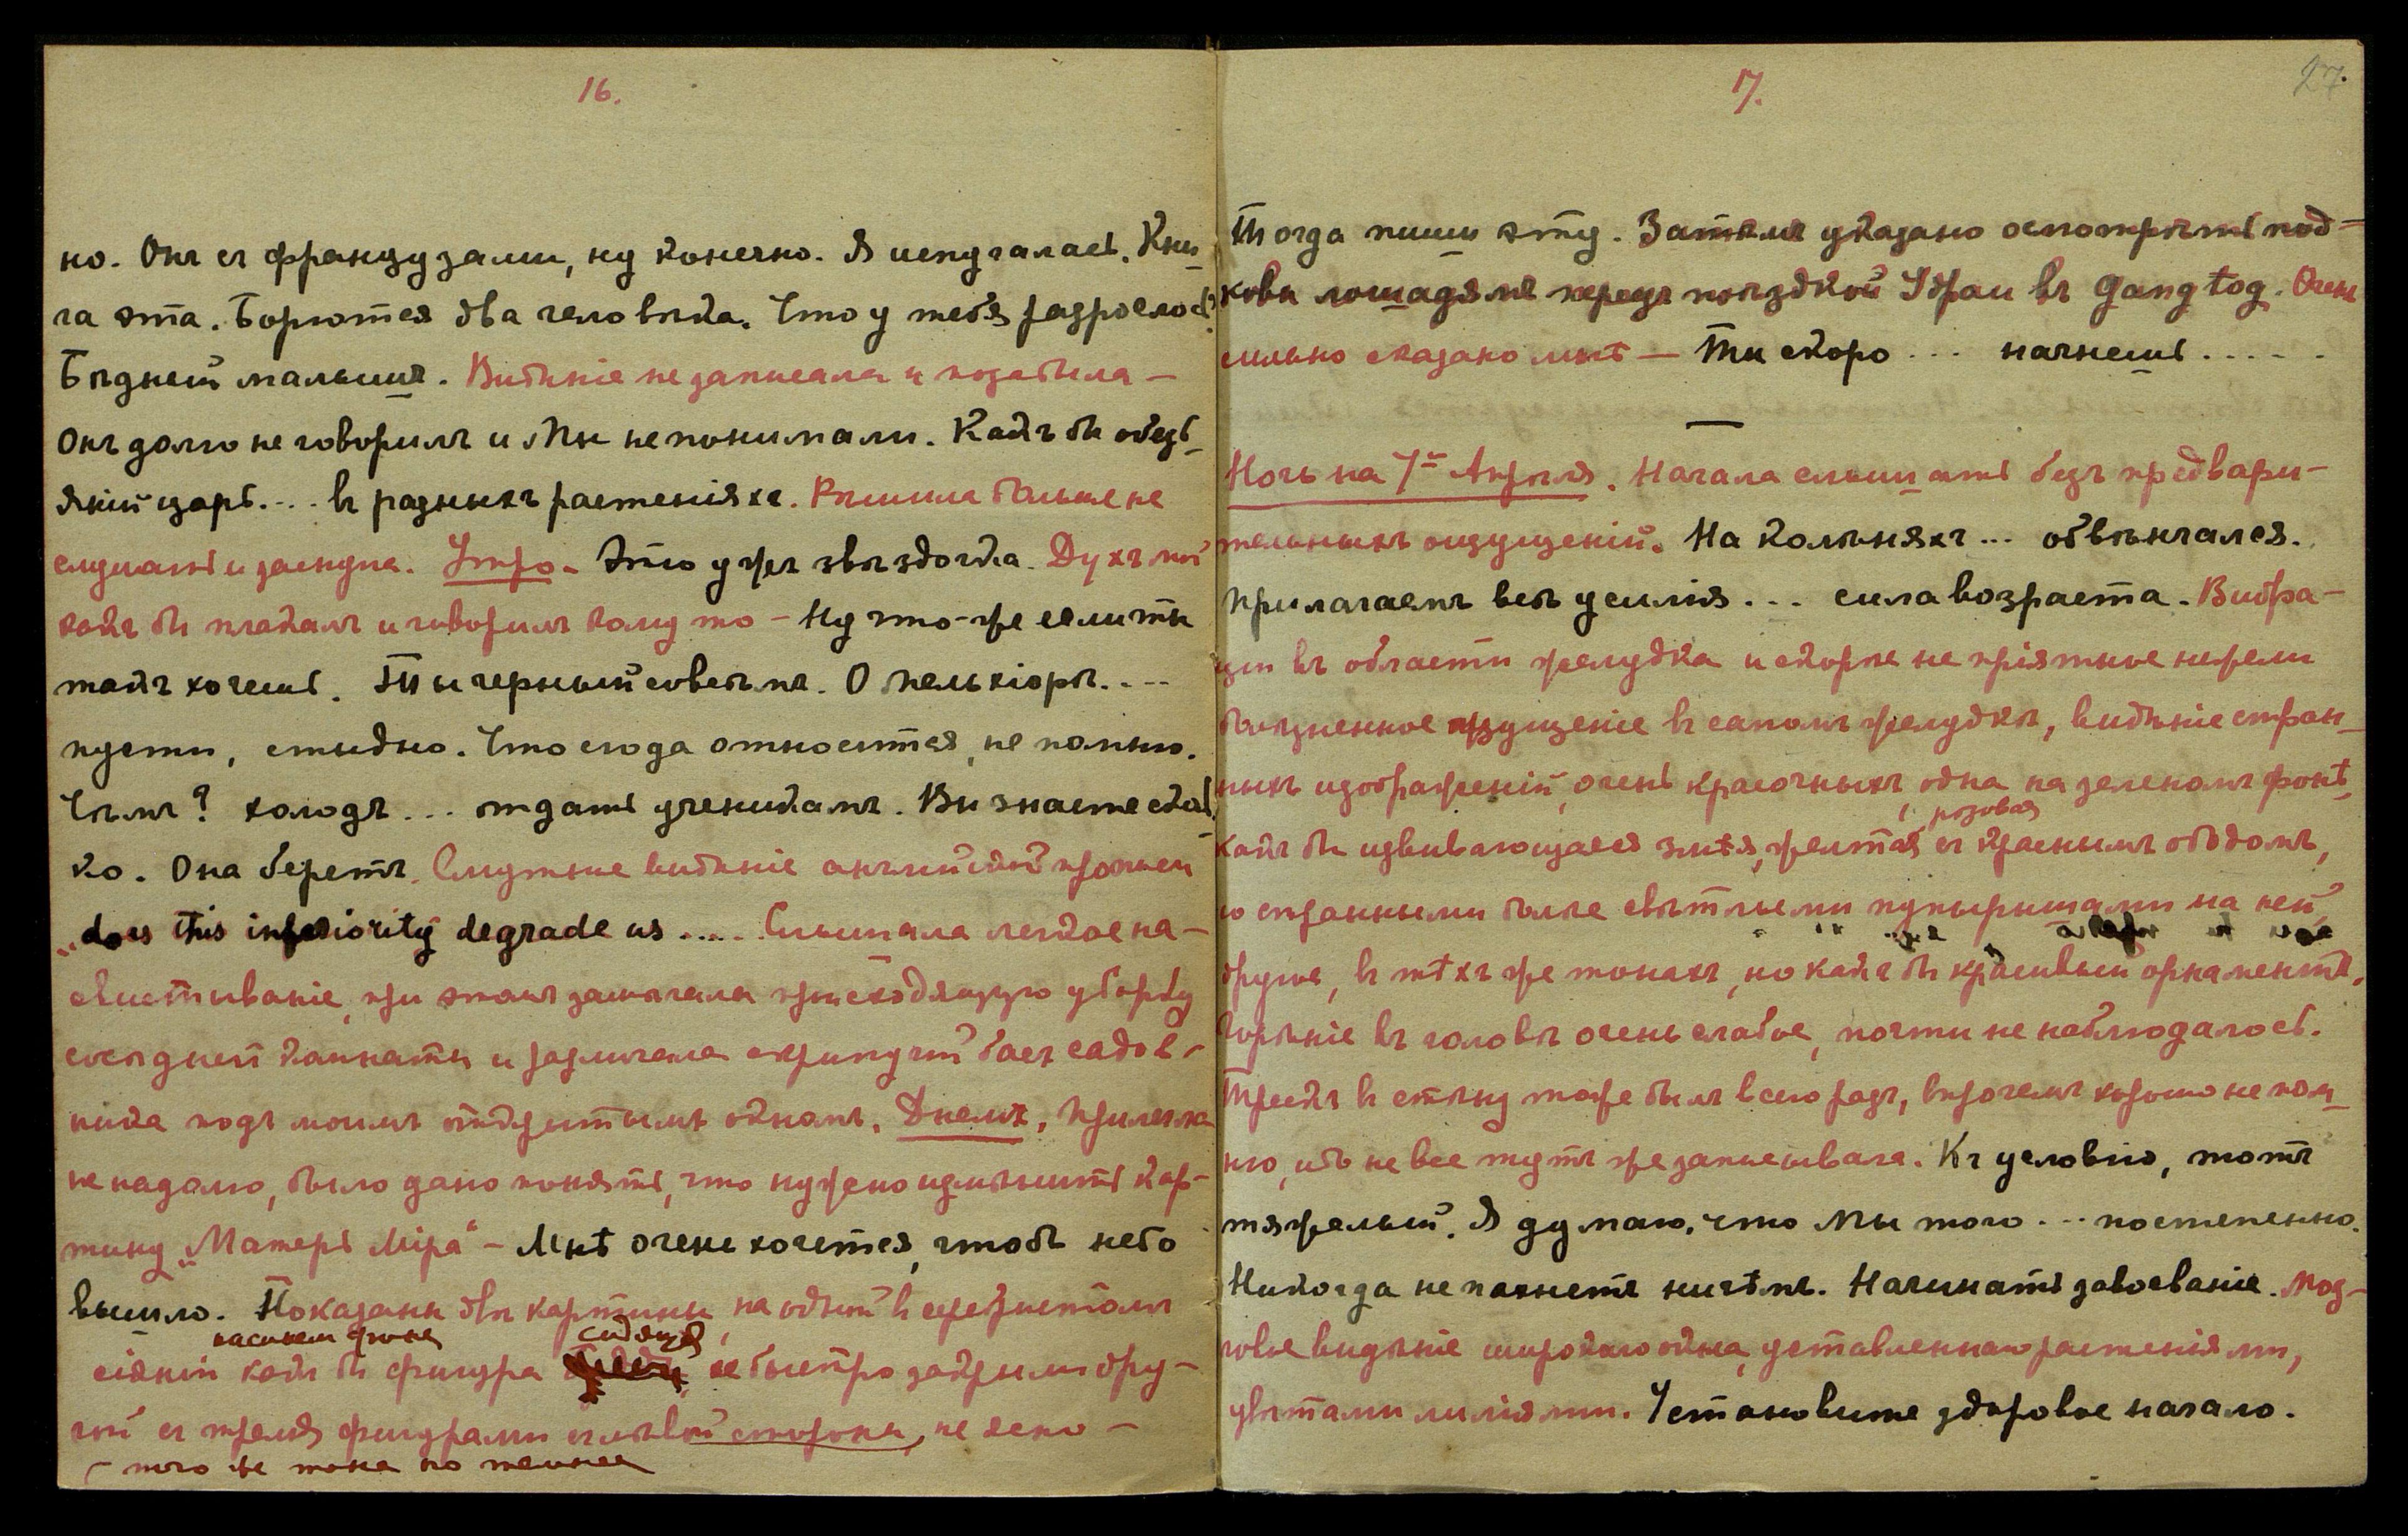 16.
но. Онъ съ французами, ну конечно. Я испугалась. Кни-
га эта. Борются два человѣка. Что у тебя разрослось?
Бѣдный малышъ. Видѣніе не записала и позабыла —
Онъ долго не говорилъ и Мы не понимали. Какъ бы обезь-
яній царь... въ разныхъ растеніяхъ. Рѣшила больше не
слушать и заснула. Утро. Это ужъ звѣздочка. Духъ мой
какъ бы плакалъ и говорилъ кому то — Ну что-же если ты
такъ хочешь. Ты черный совсѣмъ. О Мельхіорѣ....
пусти, стыдно. Что сюда относится, не помню.
Чѣмъ? холодъ... отдать ученикамъ. Вы знаете сколь-
ко. Она беретъ. Смутное видѣніе англійской прописи
„does this inferiority degrade us ..... Слышала легкое на-
свистываніе, при этомъ замѣчала происходящую уборку
сосѣдней комнаты и различала скрипучій басъ садов-
ника подъ моимъ открытымъ окномъ. Днемъ, прилегла
не надолго, было дано понять, что нужно измѣнить кар-
тину „Матерь Міра" — Мнѣ очень хочется, чтобъ небо
вышло. Показаны двѣ картины, на одной въ серебристомъ
на синемъ фонѣ сидящая
сіяніи какъ бы фигура быстро закрыли дру-
гой съ тремя фигурами съ лѣвой стороны, не ясно —
того же тона но темнее
17.
27.
Тогда пиши эту. Затѣмъ указано осмотрѣть под-
ковы лошадямъ передъ поѣздкой Удраи въ Gangtog. Очень
сильно сказано мнѣ — Ты скоро ... начнешь .....
—
Ночь на 7ое Апрѣля. Начала слышать безъ предвари-
тельныхъ ощущеній. На колѣняхъ... обвѣнчался.
Прилагаемъ всѣ усилія... сила возраста. Вибра-
ціи въ области желудка и скорѣе не пріятное нежели
болѣзненное ощущеніе въ самомъ желудкѣ, видѣніе стран-
ныхъ изображеній, очень красочныхъ одна на зеленомъ фонѣ,
розовая
какъ бы извивающаяся змѣя, желтая съ краснымъ ободомъ,
со странными болѣе свѣтлыми пупырышами на ней,
другое, въ тѣхъ же тонахъ, но какъ бы красивый орнаментъ.
Горѣніе въ головѣ очень слабое, почти не наблюдалось.
Трескъ въ стѣну тоже былъ всего разъ, впрочемъ хорошо не пом-
ню, ибо не все тутъ же записывала. Къ условію, тотъ
тяжелый. Я думаю, что Мы того... постепенно.
Никогда не пахнетъ ничѣмъ. Начинать завоеваніе. Моз-
говое видѣніе широкаго окна, уставленнаго растеніями,
цвѣтами лиліями. Установите здоровое начало.